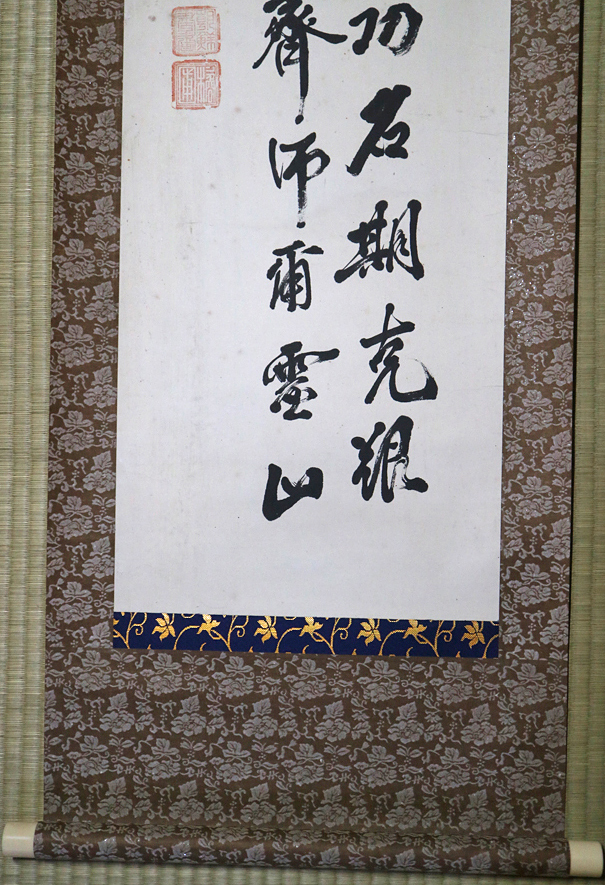 功名期克艱
齊師甫靈山